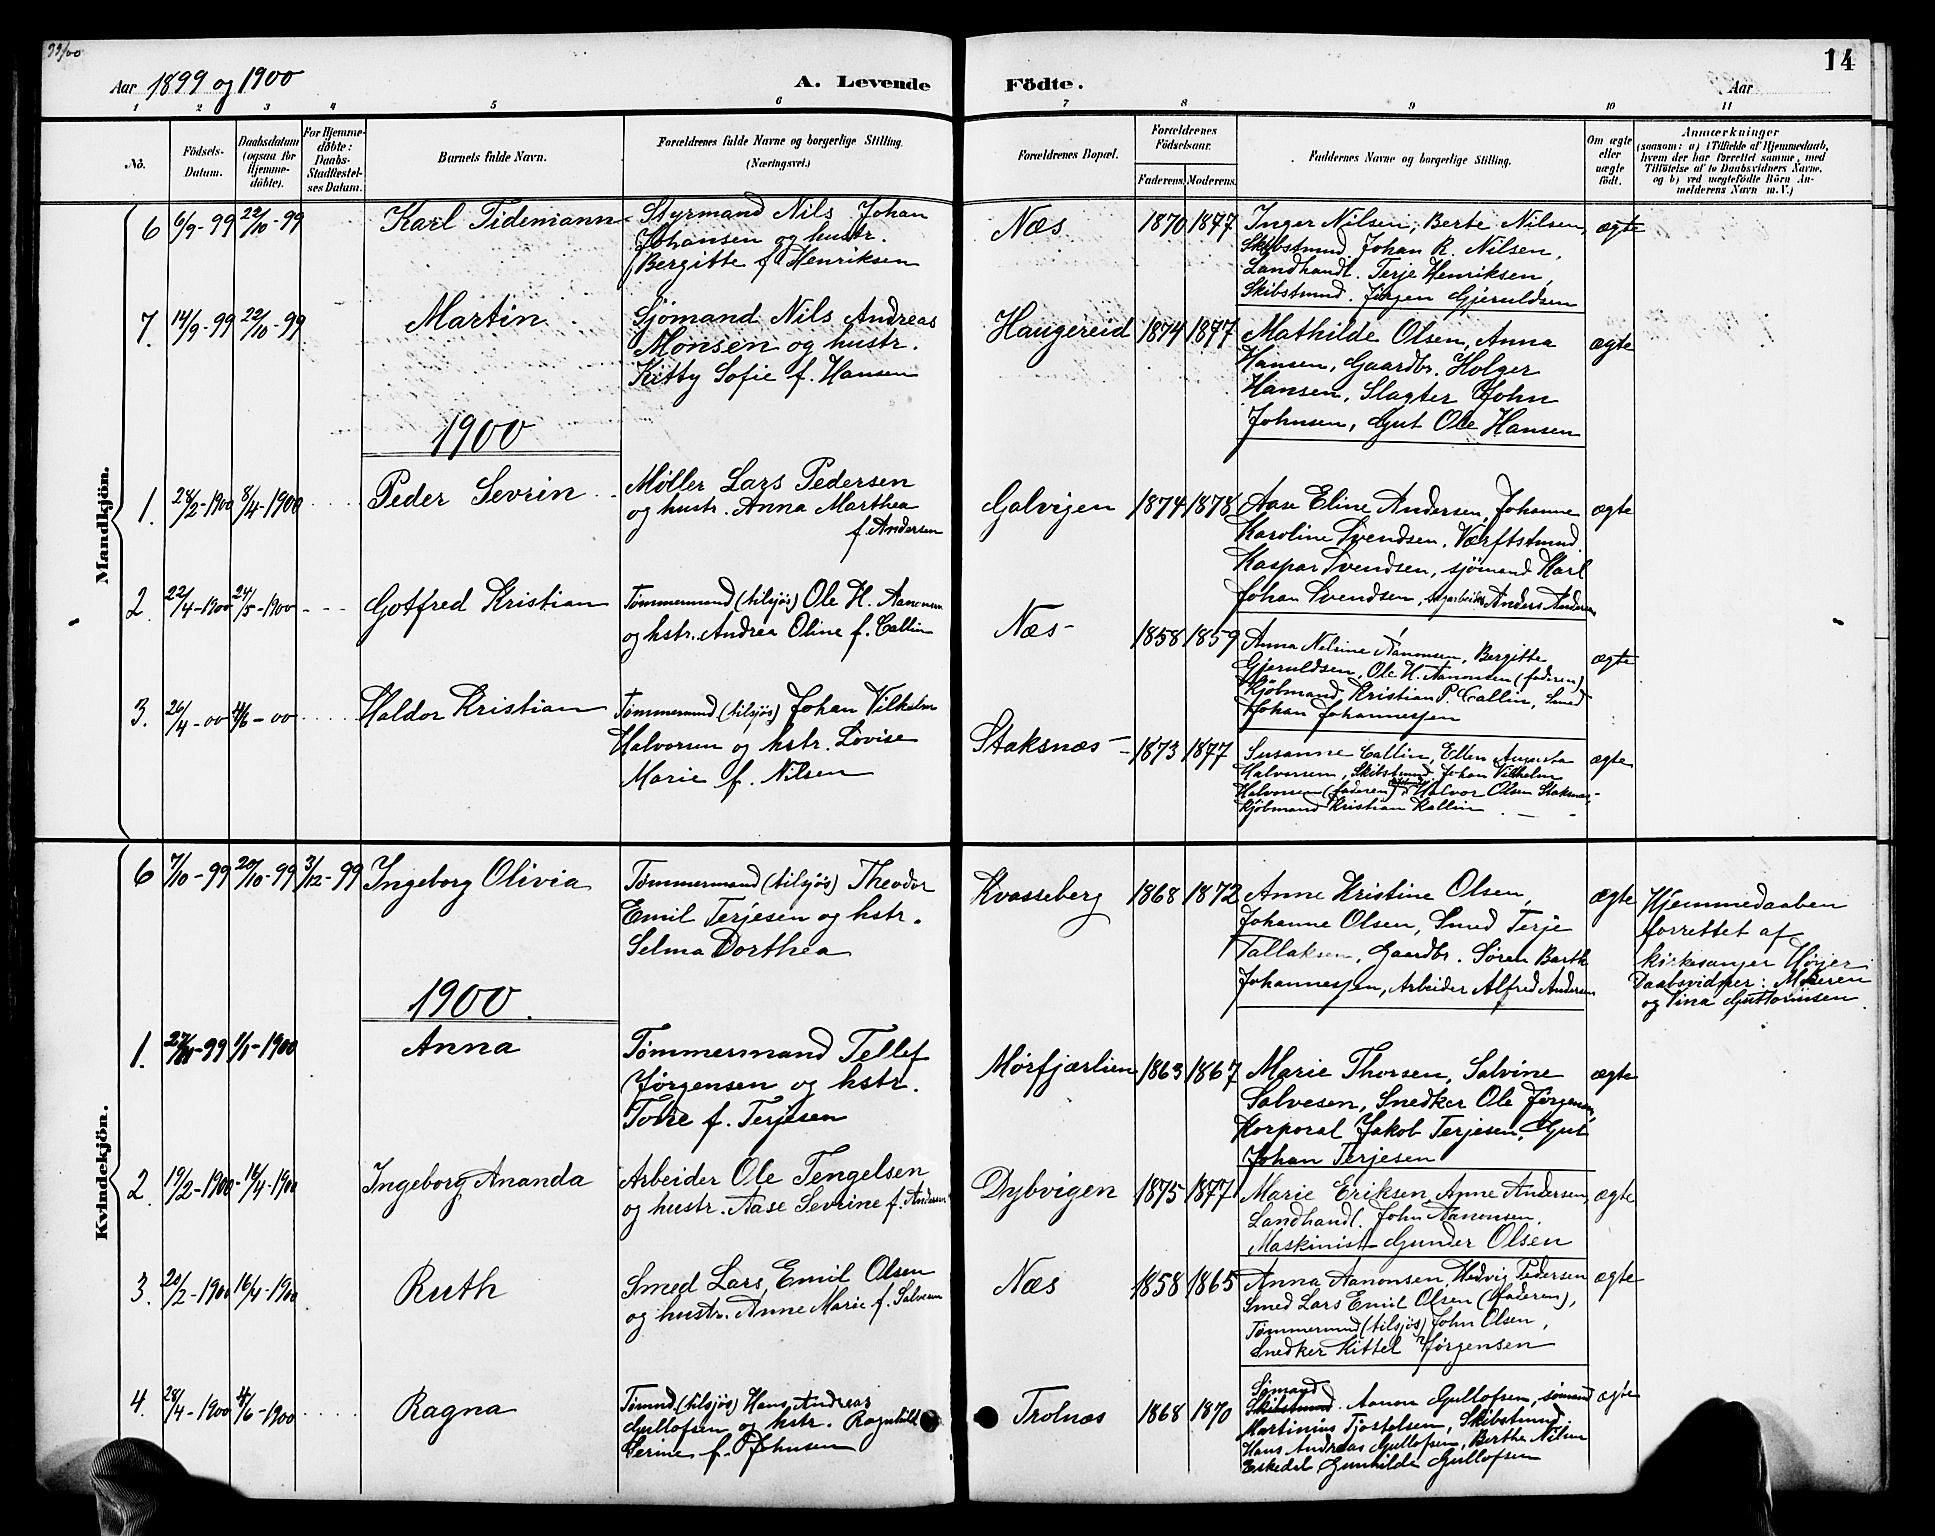 99/00
14
Aar 1899 og 1900
A. Levende
Födte.
Aar
1 2 3 4 5 6 7 8 9 10 11
No.
Födsels-
Datum.
Daabsdatum
(ogsaa for
Hjemme-
döbte).
For Hjemme-
döbte:
Daabs-
Stadfæstel-
ses Datum.
Barnets fulde Navn.
Forældrenes fulde Navne og borgerlige Stilling.
(Næringsvei.)
Forældrenes Bopæl.
Forældrenes
Födselsaar.
Faderens. Moderens.
Faddernes Navne og borgerlige Stilling.
Om ægte
eller
uægte
födt.
Anmærkninger
(saasom: a) i Tilfælde af Hjemmedaab,
hvem der har forrettet samme, med
Tilföielse af to Daabsvidners Navne,
og b) ved uægtefödte Börn An-
melderens Navn m. V.)
Mandkjön.
6 6/9-99 22/10-99 Karl Tidemann
Styrmand Nils Johan
Johansen og hustr.
Bergitte f. Henriksen
Næs 1870 1877
Inger Nilsen, Berte Nilsen,
Skibstmnd. Johan R. Nilsen,
Landhandl. Terje Henriksen,
Skibstmnd. Jørgen Gjeruldsen
ægte
7. 14/9-99 22/10-99 Martin
Sjömand Nils Andreas
Monsen og hustr.
Kitty Sofie f. Hansen
Haugereid 1874 1877
Mathilde Olsen, Anna
Hansen, Gaardbr. Holger
Hansen, Slagter John
Johnsen, Gut Ole Hansen
ægte
1900
1. 28/2-1900 8/4-1900 Peder Sevrin
Møller Lars Pedersen
og hustr. Anna Marthea
f. Andersen
Galvigen 1874 1878
Aase Eline Andersen, Johanne
Karoline Svendsen, Værftstmnd.
Kaspar Svendsen, sjömand Karl
Johan Svendsen, Anders Andersen
ægte
2 22/4-1900 24/5-1900 Gotfred Kristian
Tømmermand (tilsjös) Ole H. Aanonsen
og hstr. Andrea Oline f. Callin
Næs 1858 1859
Anna Nilsine Aanonsen, Bergitte
Gjeruldsen, Ole H. Aanonsen (faderen)
Kjöbmand Kristian P. Callin, Smed
Johan Johannessen
ægte
3. 26/4-00 4/6-00 Haldor Kristian
Tømmermnd (tilsjös) Johan Vilhelm
Halvorsen og hstr. Lovise
Marie f. Nilsen
Staksnæs 1873 1877
Susanne Callin, Ellen Augusta
Halvorsen, Skibstmnd. Johan Vilhelm
Halvorsen (faderen), Halvor Olsen Staksnæs,
Kjöbmand Kristian Kallin
ægte
Kvindekjön.
6 7/10-99 20/10-99 3/12-99 Ingeborg Olivia
Tømmermand (tilsjös) Theodor
Emil Terjesen og hstr.
Selma Dorthea
Kvasseberg 1868 1872
Anne Kristine Olsen,
Johanne Olsen, Smed Terje
Tallaksen, Gaardbr. Søren Barth
Johannessen, Arbeider Alfred Andersen
ægte
Hjemmedaaben
forrettet af
kirkesanger Høyer
Daabsvidner: Moderen
og Tina Guttormsen
1900.
1. 27/11-99 1/1-1900 Anna
Tømmermand Tellef
Jørgensen og hstr.
Tovre f. Terjesen
Mørfjærlien 1863 1867
Marie Thorsen, Salvine
Salvesen, Snedker Ole Jørgensen,
Korporal Jakob Terjesen, Gut
Johan Terjesen
ægte
2. 19/2-1900 16/4-1900 Ingeborg Ananda
Arbeider Ole Tengelsen
og hustr. Aase Sevrine f. Andersen
Dybvigen 1875 1877
Marie Eriksen, Anne Andersen,
Landhandl. John Aanonsen,
Maskinist Gunder Olsen
ægte
3. 20/2-1900 16/4-1900 Ruth
Smed Lars Emil Olsen
og hustr. Anne Marie f. Salvesen
Næs 1858 1865
Anna Aanonsen, Hedvig Pedersen
Smed Lars Emil Olsen (Faderen),
Tømmermnd (tilsjös) John Olsen,
Snedker Kittel Jørgensen
ægte
4. 28/4-1900 4/6-1900 Ragna
Tømmd (tilsjös) Hans Andreas
Gullofsen og hstr. Ragnhild
Serine f. Johnsen
Trolnæs 1868 1870
Sømand
Skibstmnd. Aanon Gullofsen, sømand
Martinius Tjostolsen, Skibstmnd.
Hans Andreas Gullofsen, Berthe Nilsen
Eskedal Gunhilde Gullofsen
ægte